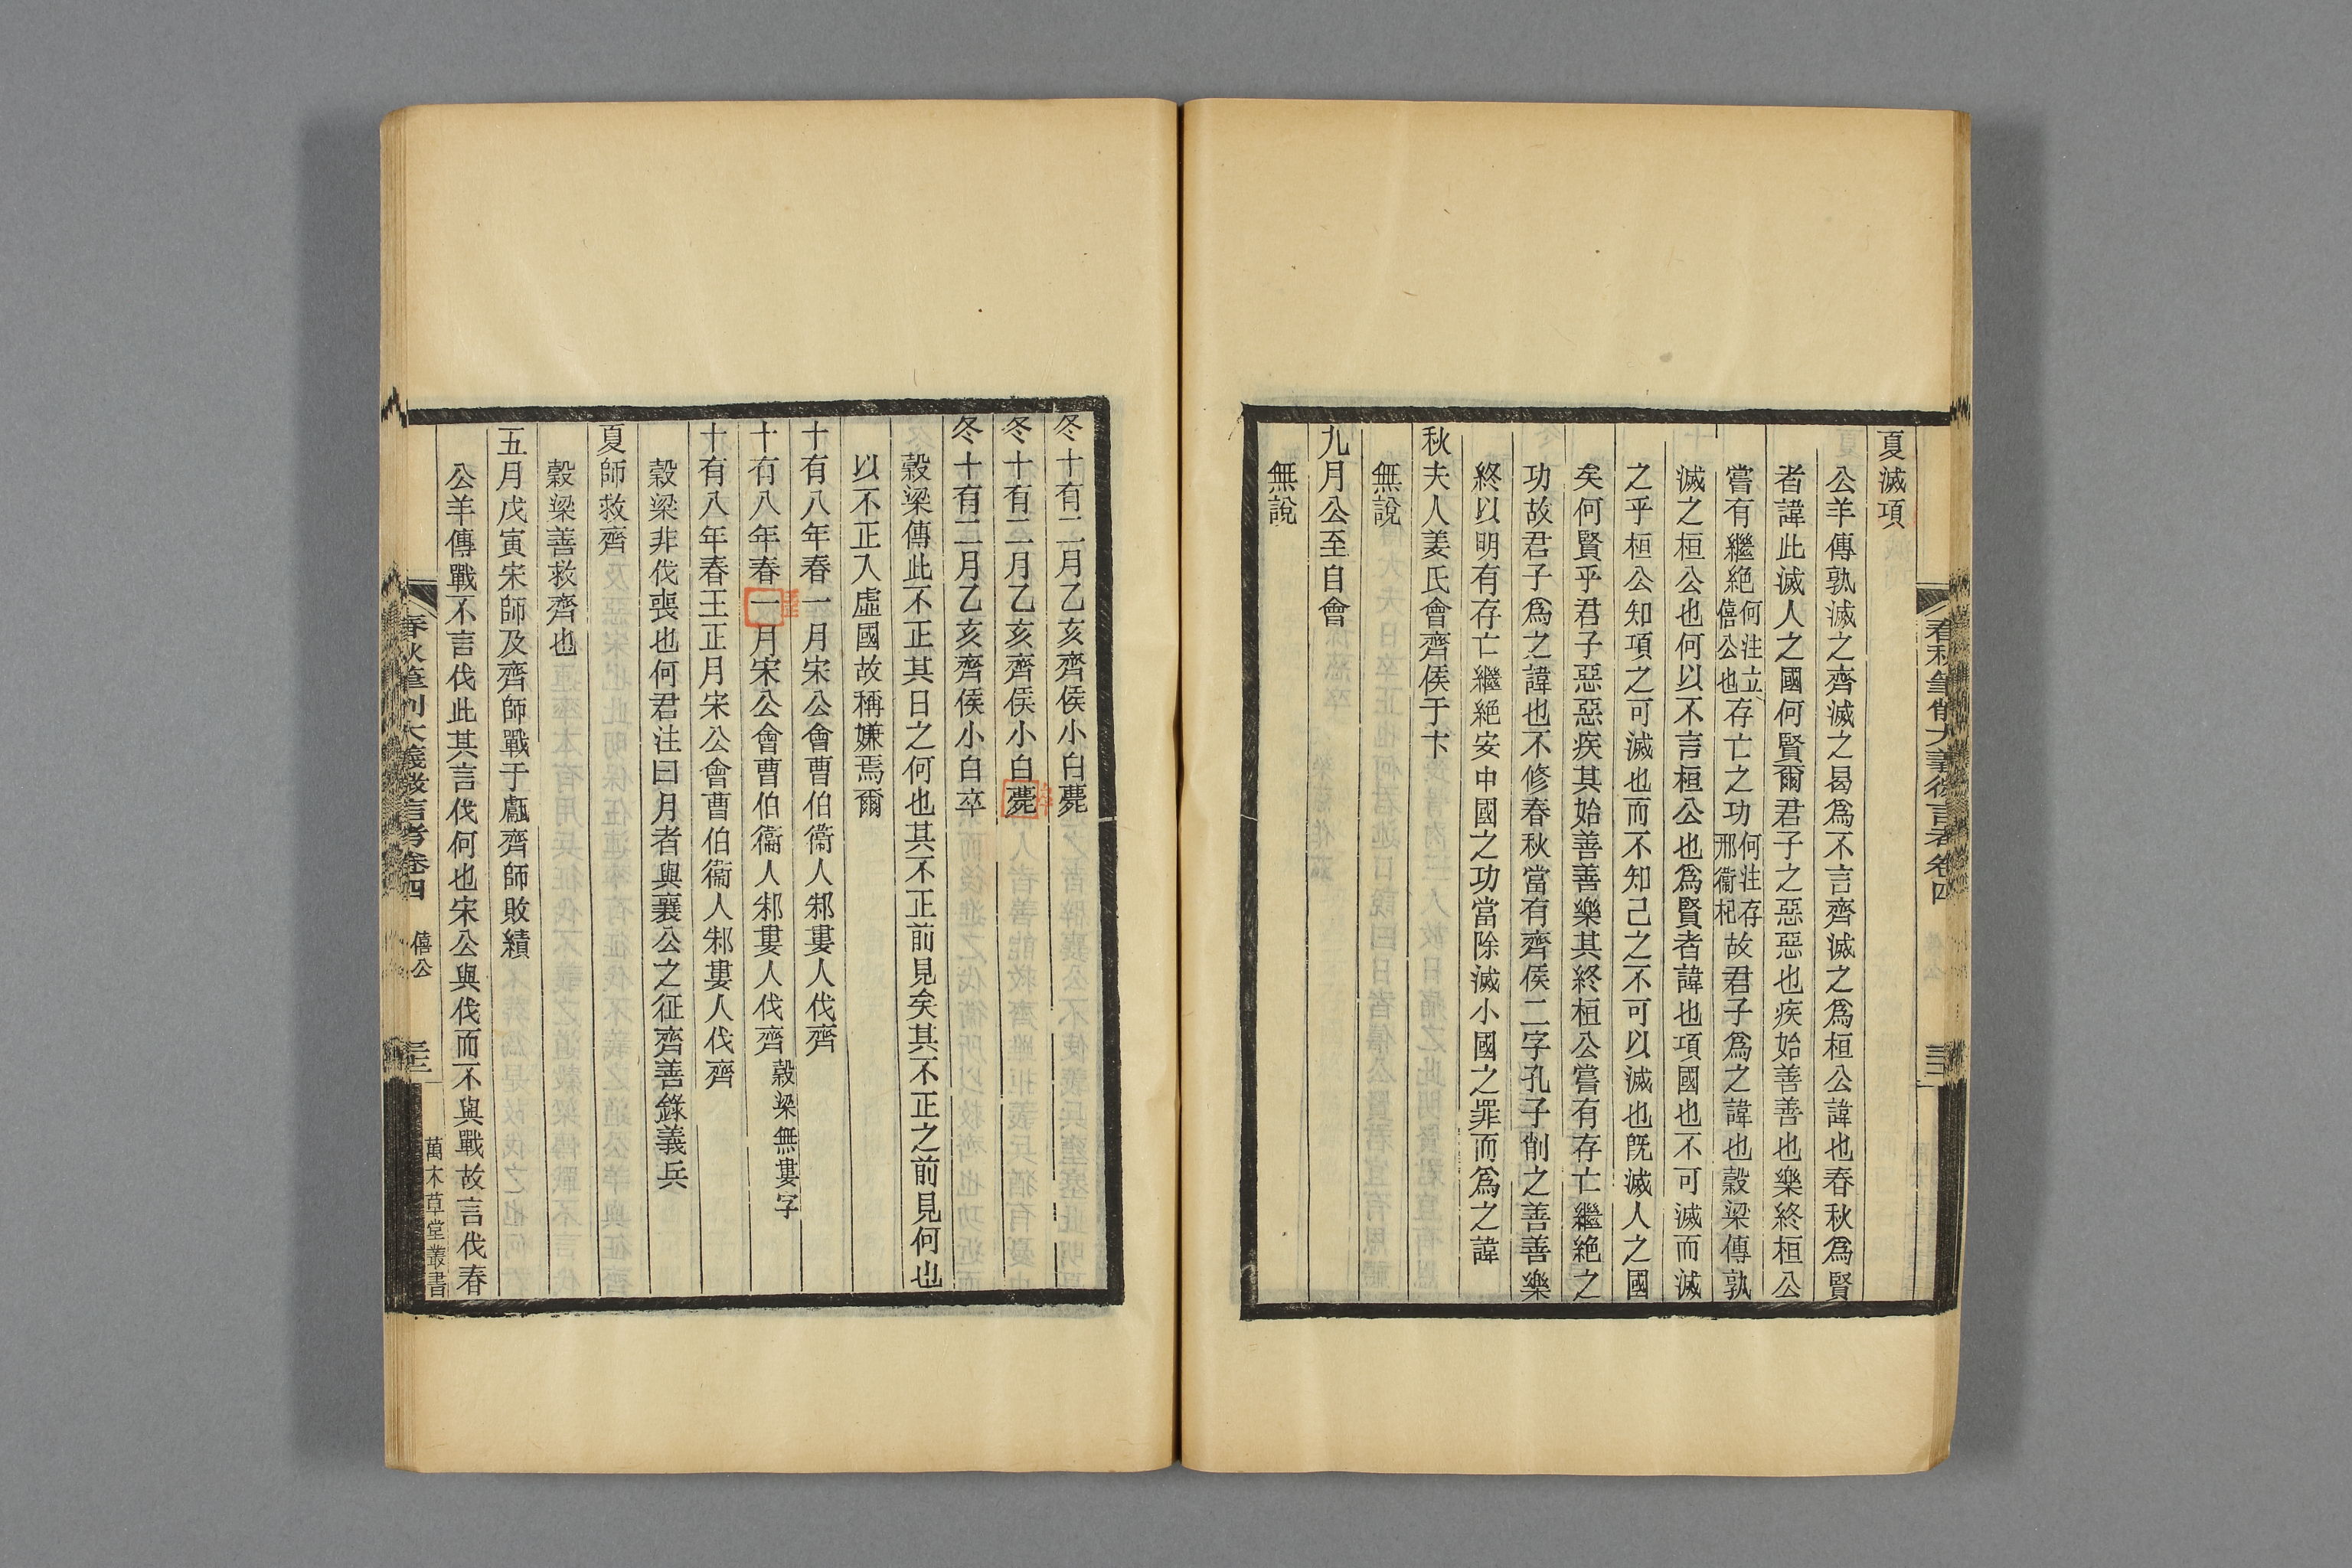 夏滅項
公羊傳孰滅之齊滅之曷爲不言齊滅之爲桓公諱也春秋爲賢
者諱此滅人之國何賢爾君子之惡惡也疾始善善也樂終桓公
嘗有繼絕何注立僖公也存亡之功何注存邢衞杞故君子爲之諱也穀梁傳孰
滅之桓公也何以不言桓公也爲賢者諱也項國也不可滅而滅
之乎桓公知項之可滅也而不知己之不可以滅也旣滅人之國
矣何賢乎君子惡惡疾其始善善樂其終桓公嘗有存亡繼絕之
功故君子爲之諱也不修春秋當有齊侯二字孔子削之善善樂
終以明有存亡繼絕安中國之功當除滅小國之罪而爲之諱
秋夫人姜氏會齊侯于卞
無說
九月公至自會
無說
冬十有二月乙亥齊侯小白薨
冬十有二月乙亥齊侯小白薨
冬十有二月乙亥齊侯小白卒
穀梁傳此不正其日之何也其不正前見矣其不正之前見何也
以不正入虛國故稱嫌焉爾
十有八年春一月宋公會曹伯衞人邾婁人伐齊
十有八年春一月宋公會曹伯衞人邾婁人伐齊穀梁無婁字
十有八年春王正月宋公會曹伯衞人邾婁人伐齊
穀梁非伐喪也何君注曰月者與襄公之征齊善錄義兵
夏師救齊
穀梁善救齊也
五月戊寅宋師及齊師戰于甗齊師敗績
公羊傳戰不言伐此其言伐何也宋公與伐而不與戰故言伐春
春秋筆削大義微言考卷四
僖公
萬木草堂叢書